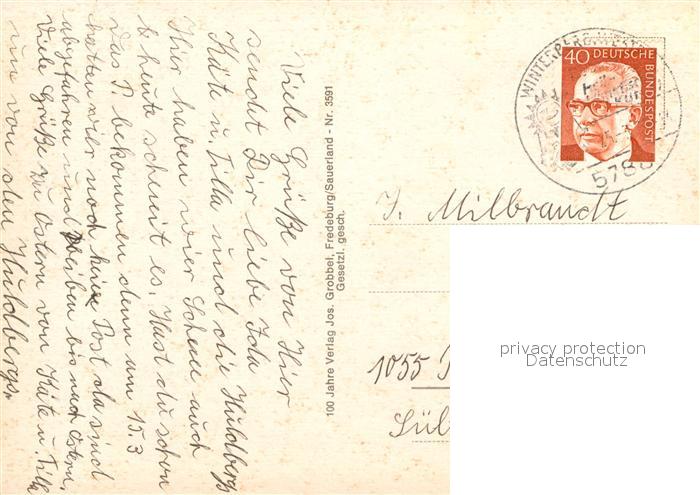 Viele Grüße von Hier
sendet Dir liebe Ida
Käte u. Tilla und die Huldbergs
Hier haben wier Schnee auch
heute schneit es. Hast du schon
das P. bekommen denn am 15.3
hatten wier noch keine Post da sind
abgefahren und bleiben bis nach Ostern.
Viele Grüße zu Ostern von Käte u. Tilla
und von den Huldbergs.
100 Jahre Verlag Jos. Grobbel, Fredeburg/Sauerland - Nr. 3591
Gesetzl. gesch.
WINTERPERG, WESTF
40 DEUTSCHE
BUNDESPOST
5788
J. Milbrandt
1055
Sül
privacy protection
Datenschutz